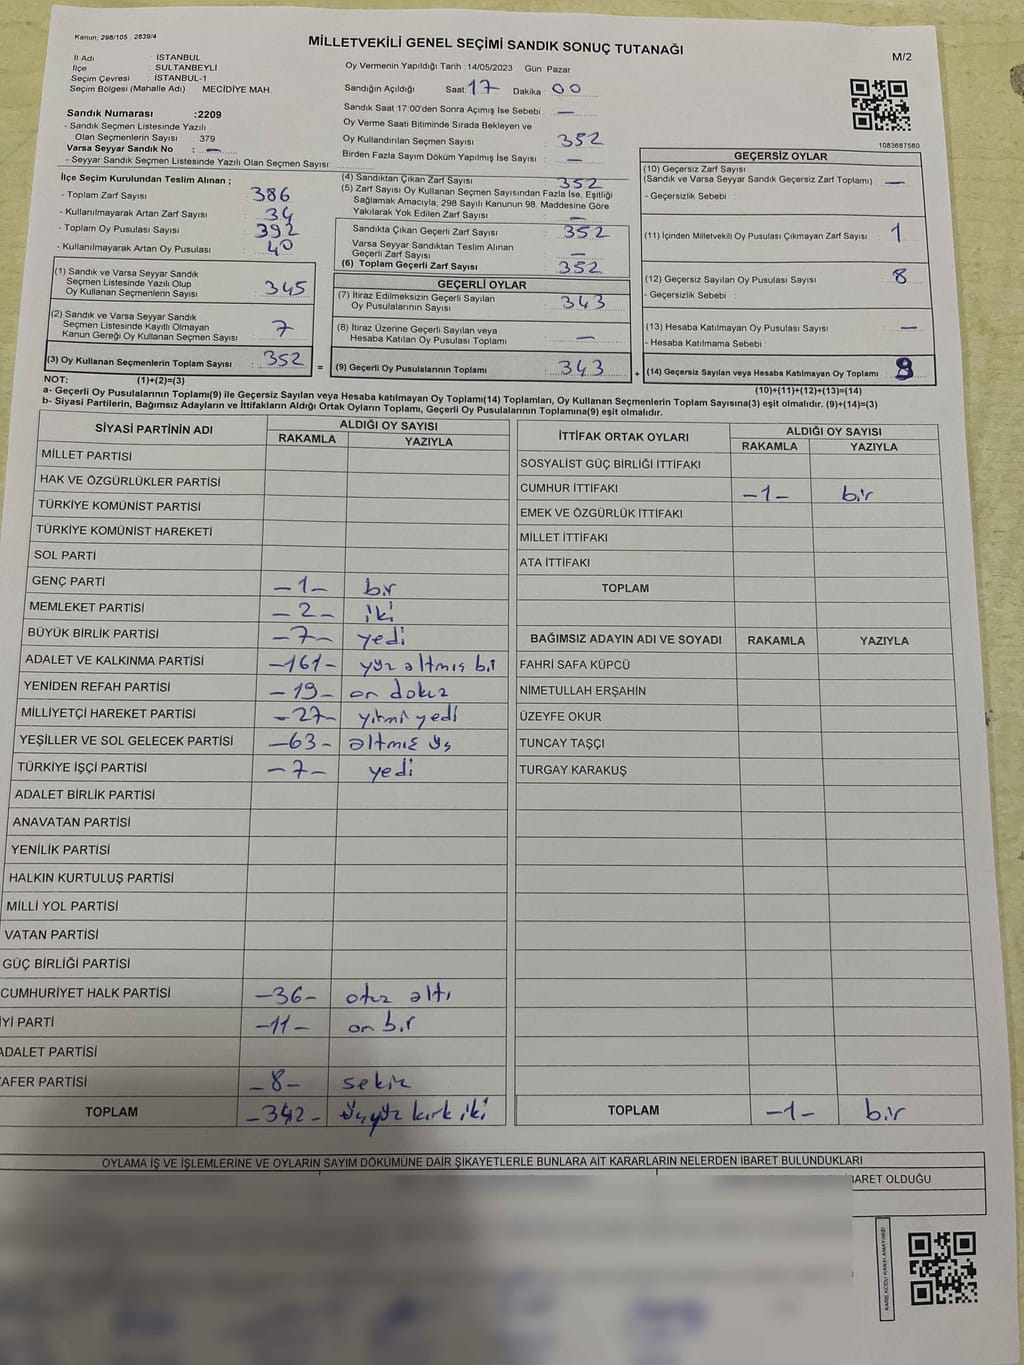 Kanun: 298/105 : 2839/4
MİLLETVEKİLİ GENEL SEÇİMİ SANDIK SONUÇ TUTANAĞI
M/2
İl Adı : İSTANBUL
İlçe : SULTANBEYLİ
Seçim Çevresi : İSTANBUL-1
Seçim Bölgesi (Mahalle Adı) : MECİDİYE MAH.
Oy Vermenin Yapıldığı Tarih : 14/05/2023 Gün: Pazar
Sandığın Açıldığı Saat: 17 Dakika : 00
Sandık Saat 17:00'den Sonra Açımış İse Sebebi : —
Oy Verme Saati Bitiminde Sırada Bekleyen ve
Oy Kullandırılan Seçmen Sayısı : 352
Birden Fazla Sayım Döküm Yapılmış İse Sayısı : —
1083687580
Sandık Numarası :2209
- Sandık Seçmen Listesinde Yazılı
Olan Seçmenlerin Sayısı : 379
Varsa Seyyar Sandık No : —
- Seyyar Sandık Seçmen Listesinde Yazılı Olan Seçmen Sayısı:
İlçe Seçim Kurulundan Teslim Alınan ;
- Toplam Zarf Sayısı : 386
- Kullanılmayarak Artan Zarf Sayısı : 34
- Toplam Oy Pusulası Sayısı : 392
- Kullanılmayarak Artan Oy Pusulası : 40
(1) Sandık ve Varsa Seyyar Sandık
Seçmen Listesinde Yazılı Olup
Oy Kullanan Seçmenlerin Sayısı : 345
(2) Sandık ve Varsa Seyyar Sandık
Seçmen Listesinde Kayıtlı Olmayan
Kanun Gereği Oy Kullanan Seçmen Sayısı : 7
(3) Oy Kullanan Seçmenlerin Toplam Sayısı : 352
(4) Sandıktan Çıkan Zarf Sayısı : 352
(5) Zarf Sayısı Oy Kullanan Seçmen Sayısından Fazla İse, Eşitliği
Sağlamak Amacıyla; 298 Sayılı Kanunun 98. Maddesine Göre
Yakılarak Yok Edilen Zarf Sayısı : —
Sandıkta Çıkan Geçerli Zarf Sayısı : 352
Varsa Seyyar Sandıktan Teslim Alınan
Geçerli Zarf Sayısı : —
(6) Toplam Geçerli Zarf Sayısı : 352
GEÇERLİ OYLAR
(7) İtiraz Edilmeksizin Geçerli Sayılan
Oy Pusulalarının Sayısı : 343
(8) İtiraz Üzerine Geçerli Sayılan veya
Hesaba Katılan Oy Pusulası Toplamı : —
= (9) Geçerli Oy Pusulalarının Toplamı : 343
GEÇERSİZ OYLAR
(10) Geçersiz Zarf Sayısı
(Sandık ve Varsa Seyyar Sandık Geçersiz Zarf Toplamı) : —
- Geçersizlik Sebebi :
(11) İçinden Milletvekili Oy Pusulası Çıkmayan Zarf Sayısı : 1
(12) Geçersiz Sayılan Oy Pusulası Sayısı : 8
- Geçersizlik Sebebi :
(13) Hesaba Katılmayan Oy Pusulası Sayısı : —
- Hesaba Katılmama Sebebi :
+ (14) Geçersiz Sayılan veya Hesaba Katılmayan Oy Toplamı :
NOT: (1)+(2)=(3)
(10)+(11)+(12)+(13)=(14)
a- Geçerli Oy Pusulalarının Toplamı(9) ile Geçersiz Sayılan veya Hesaba katılmayan Oy Toplamı(14) Toplamları, Oy Kullanan Seçmenlerin Toplam Sayısına(3) eşit olmalıdır. (9)+(14)=(3)
b- Siyasi Partilerin, Bağımsız Adayların ve İttifakların Aldığı Ortak Oyların Toplamı, Geçerli Oy Pusulalarının Toplamına(9) eşit olmalıdır.
SİYASİ PARTİNİN ADI
ALDIĞI OY SAYISI
RAKAMLA YAZIYLA
MİLLET PARTİSİ
HAK VE ÖZGÜRLÜKLER PARTİSİ
TÜRKİYE KOMÜNİST PARTİSİ
TÜRKİYE KOMÜNİST HAREKETİ
SOL PARTİ
GENÇ PARTİ -1- bir
MEMLEKET PARTİSİ -2- iki
BÜYÜK BİRLİK PARTİSİ -7- yedi
ADALET VE KALKINMA PARTİSİ -161- yüz altmış bi
YENİDEN REFAH PARTİSİ -19- on dokuz
MİLLİYETÇİ HAREKET PARTİSİ -27- yirmi yedi
YEŞİLLER VE SOL GELECEK PARTİSİ -63- altmış üç
TÜRKİYE İŞÇİ PARTİSİ -7- yedi
ADALET BİRLİK PARTİSİ
ANAVATAN PARTİSİ
YENİLİK PARTİSİ
HALKIN KURTULUŞ PARTİSİ
MİLLİ YOL PARTİSİ
VATAN PARTİSİ
GÜÇ BİRLİĞİ PARTİSİ
CUMHURİYET HALK PARTİSİ -36- otuz altı
İYİ PARTİ -11- on bir
ADALET PARTİSİ
ZAFER PARTİSİ -8- sekiz
TOPLAM -342- Üçyüz kırk iki
İTTİFAK ORTAK OYLARI
ALDIĞI OY SAYISI
RAKAMLA YAZIYLA
SOSYALİST GÜÇ BİRLİĞİ İTTİFAKI
CUMHUR İTTİFAKI -1- bir
EMEK VE ÖZGÜRLÜK İTTİFAKI
MİLLET İTTİFAKI
ATA İTTİFAKI
TOPLAM
BAĞIMSIZ ADAYIN ADI VE SOYADI RAKAMLA YAZIYLA
FAHRİ SAFA KÜPCÜ
NİMETULLAH ERŞAHİN
ÜZEYFE OKUR
TUNCAY TAŞÇI
TURGAY KARAKUŞ
TOPLAM -1- bir
OYLAMA İŞ VE İŞLEMLERİNE VE OYLARIN SAYIM DÖKÜMÜNE DAİR ŞİKAYETLERLE BUNLARA AİT KARARLARIN NELERDEN İBARET BULUNDUKLARI
İBARET OLDUĞU